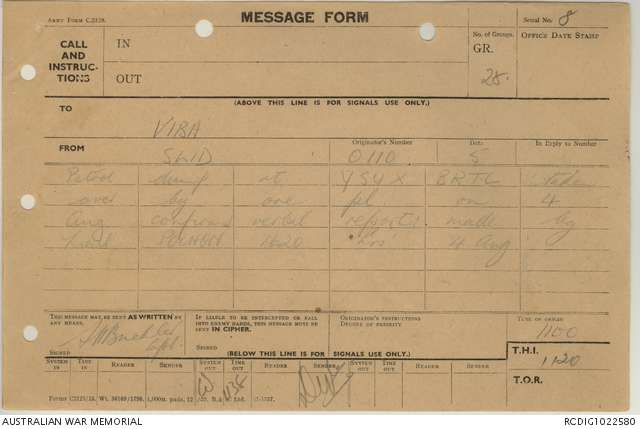 ARMY FORM C.2128.
MESSAGE FORM
Serial No. 8
CALL AND INSTRUCTIONS
IN
OUT
No. of Groups.
GR.
28.
OFFICE DATE STAMP
(ABOVE THIS LINE IS FOR SIGNALS USE ONLY.)
TO
VIBA
FROM
Originator's Number
Date
In Reply to Number
0110
5
Petrol dump at YSYX BRTC taken
over by one pl on 4
Aug confirms verbal reports made by
1620 hrs 4 Aug
THIS MESSAGE MAY BE SENT AS WRITTEN BY ANY MEANS.
SIGNED
IF LIABLE TO BE INTERCEPTED OR FALL INTO ENEMY HANDS, THIS MESSAGE MUST BE SENT IN CIPHER.
SIGNED
ORIGINATOR'S INSTRUCTIONS
DEGREE OF PRIORITY
TIME OF ORIGIN
1100
(BELOW THIS LINE IS FOR SIGNALS USE ONLY.)
T.H.I.
1120
SYSTEM IN
TIME IN
READER
SENDER
SYSTEM OUT
TIME OUT
READER
SENDER
SYSTEM OUT
TIME OUT
READER
SENDER
T.O.R.
1138
AUSTRALIAN WAR MEMORIAL
RCDIG1022580